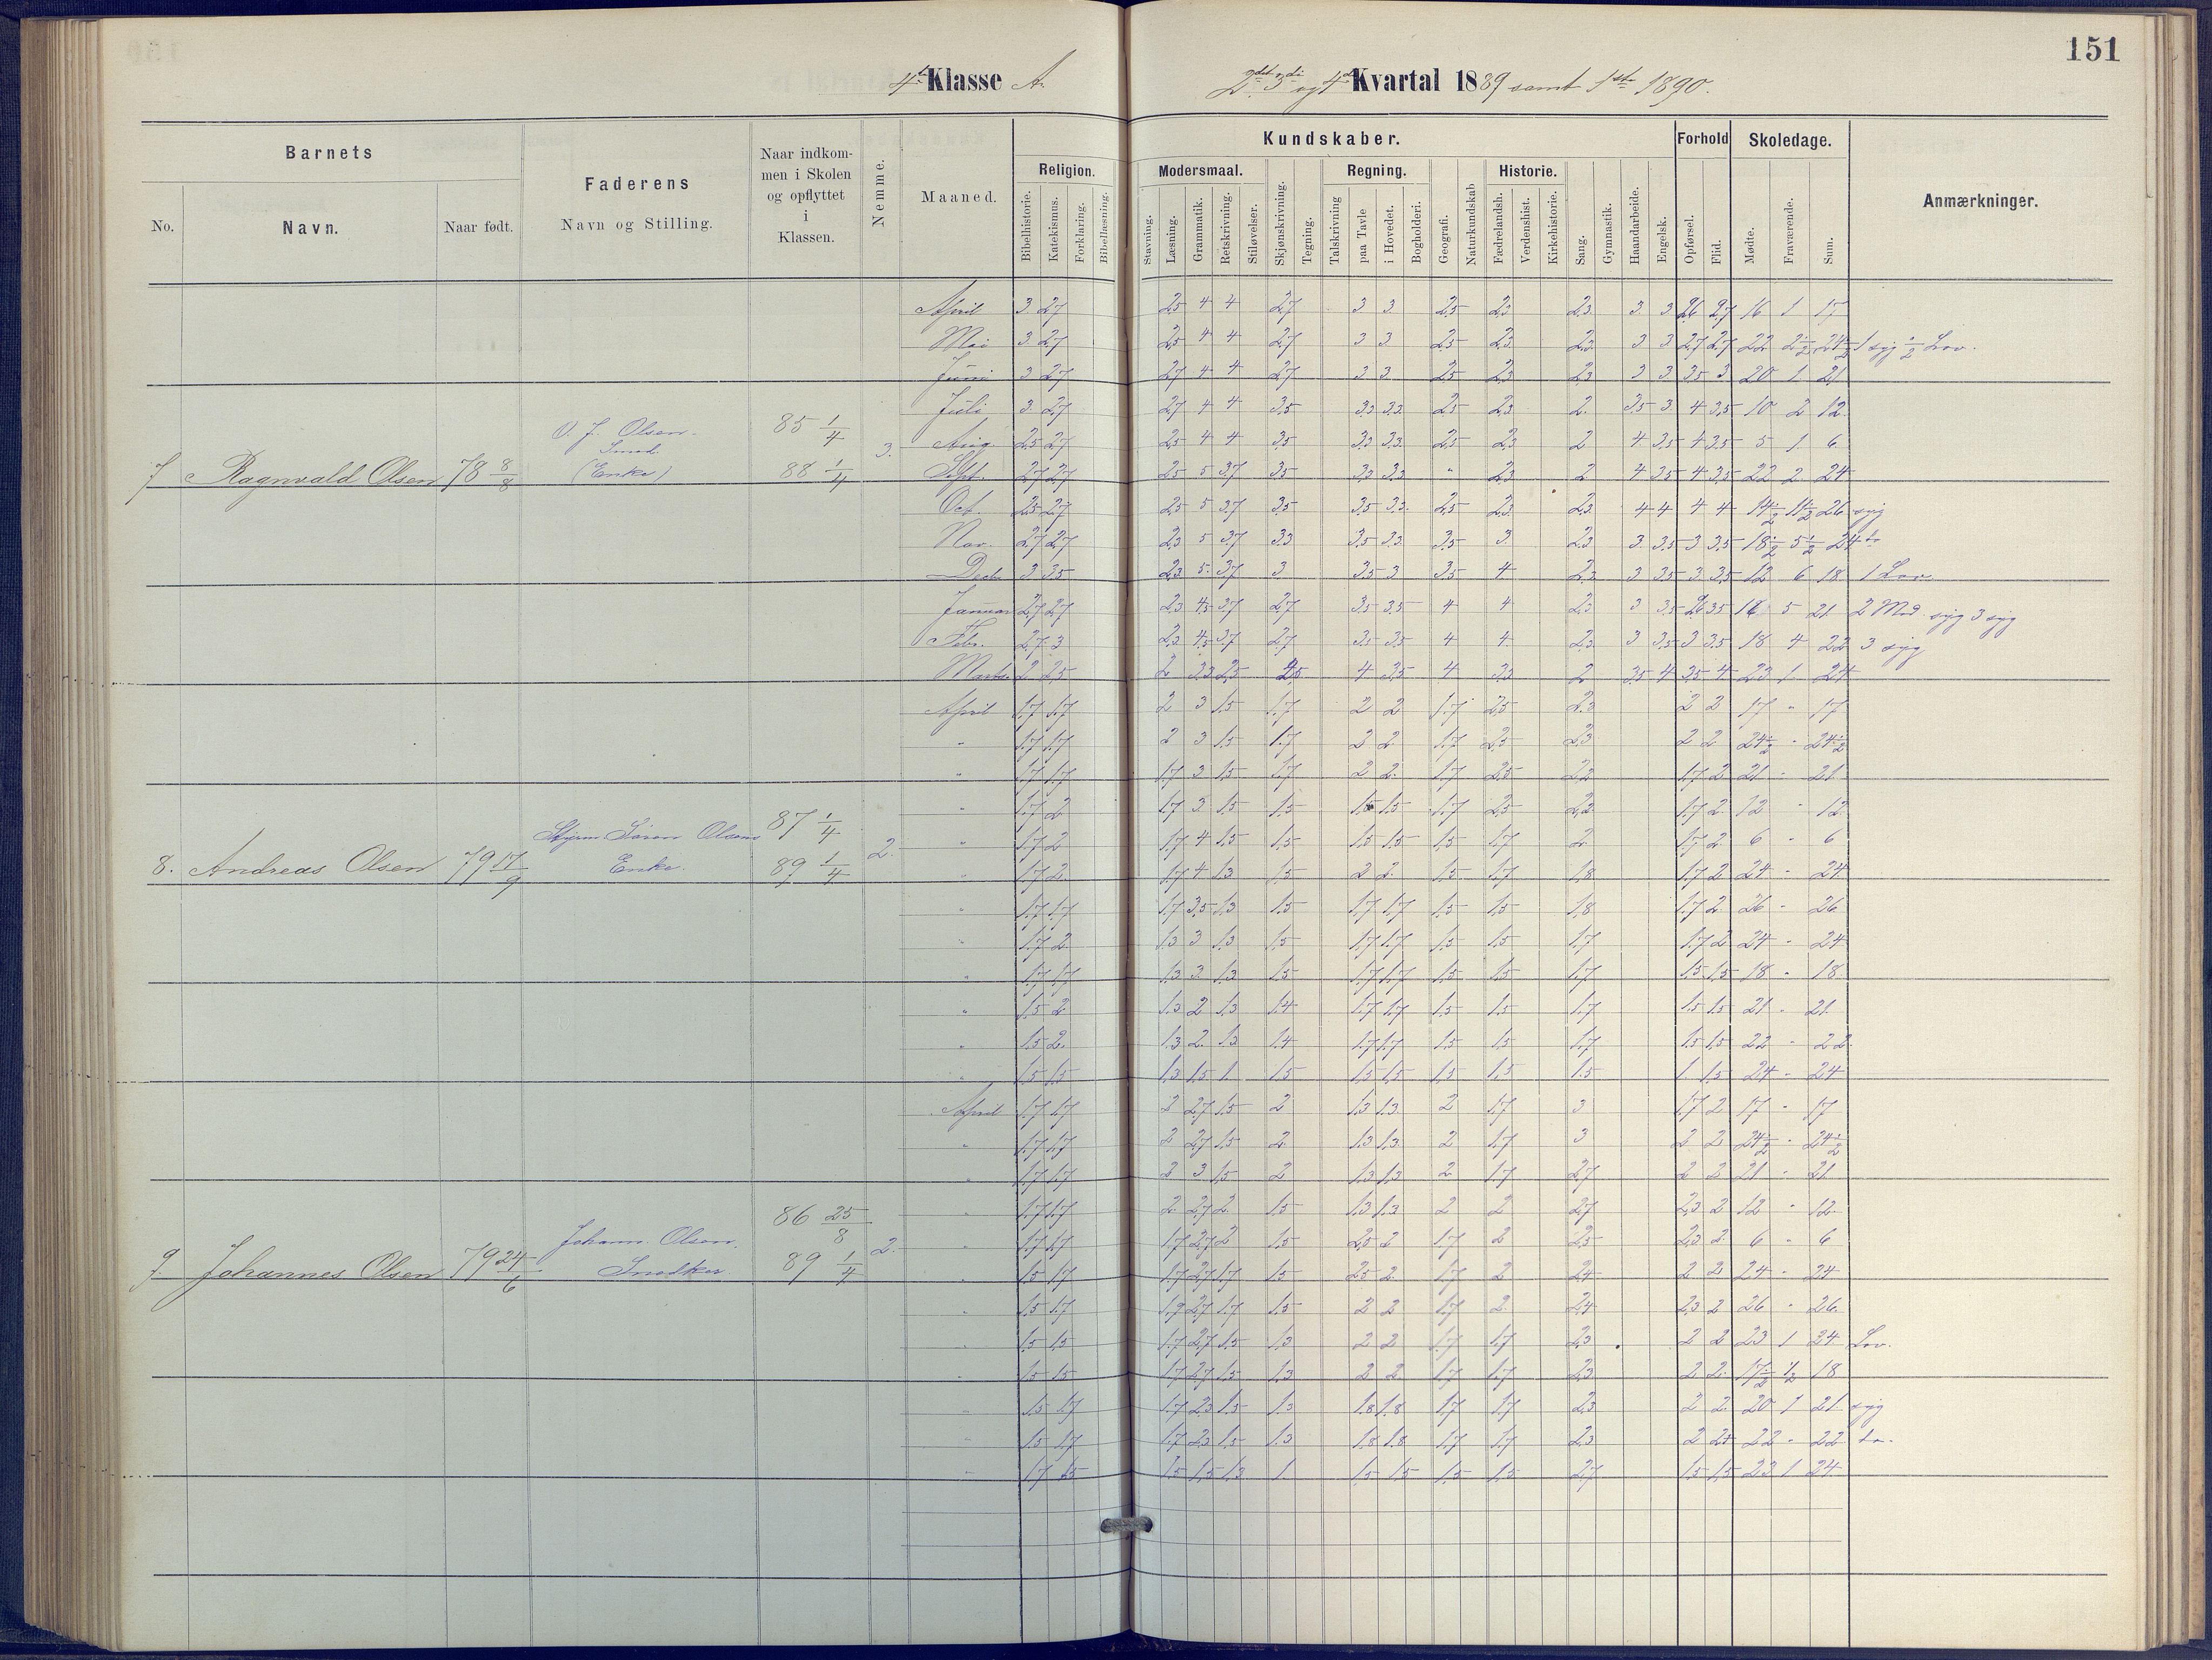 151
4de Klasse A.
2det 3die og 4de Kvartal 1889 samt 1ste 1890.
Barnets
No.
Navn.
Naar født.
Faderens
Navn og Stilling.
Naar indkom-
men i Skolen
og opflyttet
i
Klassen.
Nemme.
Maaned.
Kundskaber.
Religion.
Bibelhistorie.
Katekismus.
Forklaring.
Bibellæsning.
Modersmaal.
Stavning.
Læsning.
Grammatik.
Retskrivning.
Stiløvelser.
Skjønskrivning.
Tegning.
Regning.
Talskrivning
paa Tavle
i Hovedet.
Bogholderi.
Geografi.
Naturkundskab
Historie.
Fædrelandsh.
Verdenshist.
Kirkehistorie.
Sang.
Gymnastik.
Haandarbeide.
Engelsk.
Forhold
Opførsel.
Flid.
Skoledage.
Mødte.
Fraværende.
Sum.
Anmærkninger.
7 Ragnvald Olsen 78 8/8
O. J. Olsen.
Smed
(Enke)
85 1/4
88 1/4
3.
April 3 2,7 2,5 4 4 2,7 3 3 2,5 2,3 2,3 3 3 2,6 2,7 16 1 17
Mai 3 2,7 2,5 4 4 2,7 3 3 2,5 2,3 2,3 3 3 2,7 2,7 22 2 1/2 24 1/2 1 syg 1/2 Lov.
Juni 3 2,7 2,7 4 4 2,7 3 3 2,5 2,3 2,3 3 3 3,5 3 20 1 21
Juli 3 2,7 2,7 4 4 3,5 3,3 3,3 2,5 2,3 2 3,5 3 4 3,5 10 2 12
Aug. 2,5 2,7 2,5 4 4 3,5 3,3 3,3 2,5 2,3 2 4 3,5 4 3,5 5 1 6
Sept. 2,7 2,7 2,5 5 3,7 3,5 3,3 3,3 " 2,3 2 4 3,5 4 3,5 22 2 24
Oct. 2,5 2,7 2,5 5 3,7 3,5 3,5 3,3 2,5 2,3 2,3 4 4 4 4 14 1/2 11 1/2 26 syg
Nov. 2,7 2,7 2,3 5 3,7 3,3 3,5 3,3 3,5 3 2,3 3 3,5 3 3,5 18 1/2 5 1/2 24 do
Decb. 3 3,5 2,3 5 3,7 3 3,5 3 3,5 4 2,3 3 3,5 3 3,5 12 6 18 1 Lov
Januar 2,7 2,7 2,3 4,5 3,7 2,7 3,5 3,5 4 4 2,3 3 3,5 2,6 3,5 16 5 21 2 syg 3 syg
Febr. 2,7 3 2,3 4,5 3,7 2,7 3,5 3,5 4 4 2,3 3 3,5 3 3,5 18 4 22 3 syg
Marts 2 2,5 2 3,3 2,5 2,5 4 3,5 4 3,3 2 3,5 4 3,5 4 23 1 24
8. Andreas Olsen 79 17/9
Styrm. Søren Olsens
Enke.
87 1/4
89 1/4
2.
April 1,7 1,7 2 3 1,5 1,7 2 2 1,7 2,5 2,3 2 2 17 " 17
" 1,7 1,7 2 3 1,5 1,7 2 2 1,7 2,5 2,3 2 2 24 1/2 " 24 1/2
" 1,7 1,7 1,7 3 1,5 1,7 2 2 1,7 2,5 2,2 1,7 2 21 " 21
" 1,7 2 1,7 3 1,5 1,5 1,5 1,5 1,7 2,5 2,2 1,7 2 12 " 12
" 1,7 2 1,7 4 1,5 1,5 1,5 1,5 1,5 1,7 2 1,7 2 6 " 6
" 1,7 2 1,7 4 1,3 1,5 2 2 1,5 1,7 1,8 1,7 2 24 " 24
" 1,7 1,7 1,7 3,5 1,3 1,5 1,7 1,7 1,5 1,5 1,8 1,7 2 26 " 26
" 1,7 2 1,3 3 1,3 1,5 1,7 1,7 1,5 1,5 1,7 1,7 2 24 " 24
" 1,7 1,7 1,3 3 1,3 1,5 1,7 1,7 1,5 1,5 1,7 1,5 1,5 18 " 18
" 1,5 2 1,3 2 1,3 1,4 1,7 1,7 1,5 1,5 1,7 1,5 1,5 21 " 21
" 1,5 2 1,3 2 1,3 1,4 1,7 1,7 1,5 1,5 1,7 1,5 1,5 22 " 22
" 1,5 1,5 1,3 1,5 1 1,5 1,5 1,5 1,5 1,5 1,5 1 1,5 24 " 24
9. Johannes Olsen 79 24/6
Johann Olsen.
Snedker
86 25/8
89 1/4
2.
April 1,7 1,7 2 2,7 1,5 2 1,3 1,3 2 1,7 3 1,7 2 17 " 17
" 1,7 1,7 2 2,7 1,5 2 1,3 1,3 2 1,7 3 2 2 24 1/2 " 24 1/2
" 1,7 1,7 2 3 1,5 2 1,3 1,3 2 1,7 2,7 2 2 21 " 21
" 1,7 1,7 2 2,7 2 1,5 1,3 1,3 2 2 2,7 2,3 2 12 " 12
" 1,7 1,7 1,7 2,7 2 1,5 2,5 2 1,7 2 2,5 2,3 2 6 " 6
" 1,5 1,7 1,7 2,7 1,7 1,5 2,5 2 1,7 2 2,4 2 2 24 " 24
" 1,5 1,7 1,7 2,7 1,7 1,5 2 2 1,7 2 2,4 2,3 2 26 " 26
" 1,5 1,5 1,7 2,7 1,5 1,3 2 2 1,7 1,7 2,3 2 2 23 1 24 Lov.
" 1,5 1,5 1,7 2,7 1,5 1,3 2 2 1,7 1,7 2,3 2 2 17 1/2 1/2 18
" 1,5 1,7 1,7 2,3 1,5 1,3 1,8 1,8 1,7 1,7 2,3 2 2 20 1 21 syg
" 1,5 1,7 1,7 2,3 1,5 1,3 1,8 1,8 1,7 1,7 2,3 2 22 " 22 do.
" 1,7 1,5 1,5 1,5 1,3 1 1,5 1,5 1,5 1,5 2,7 1,5 1,5 23 1 24